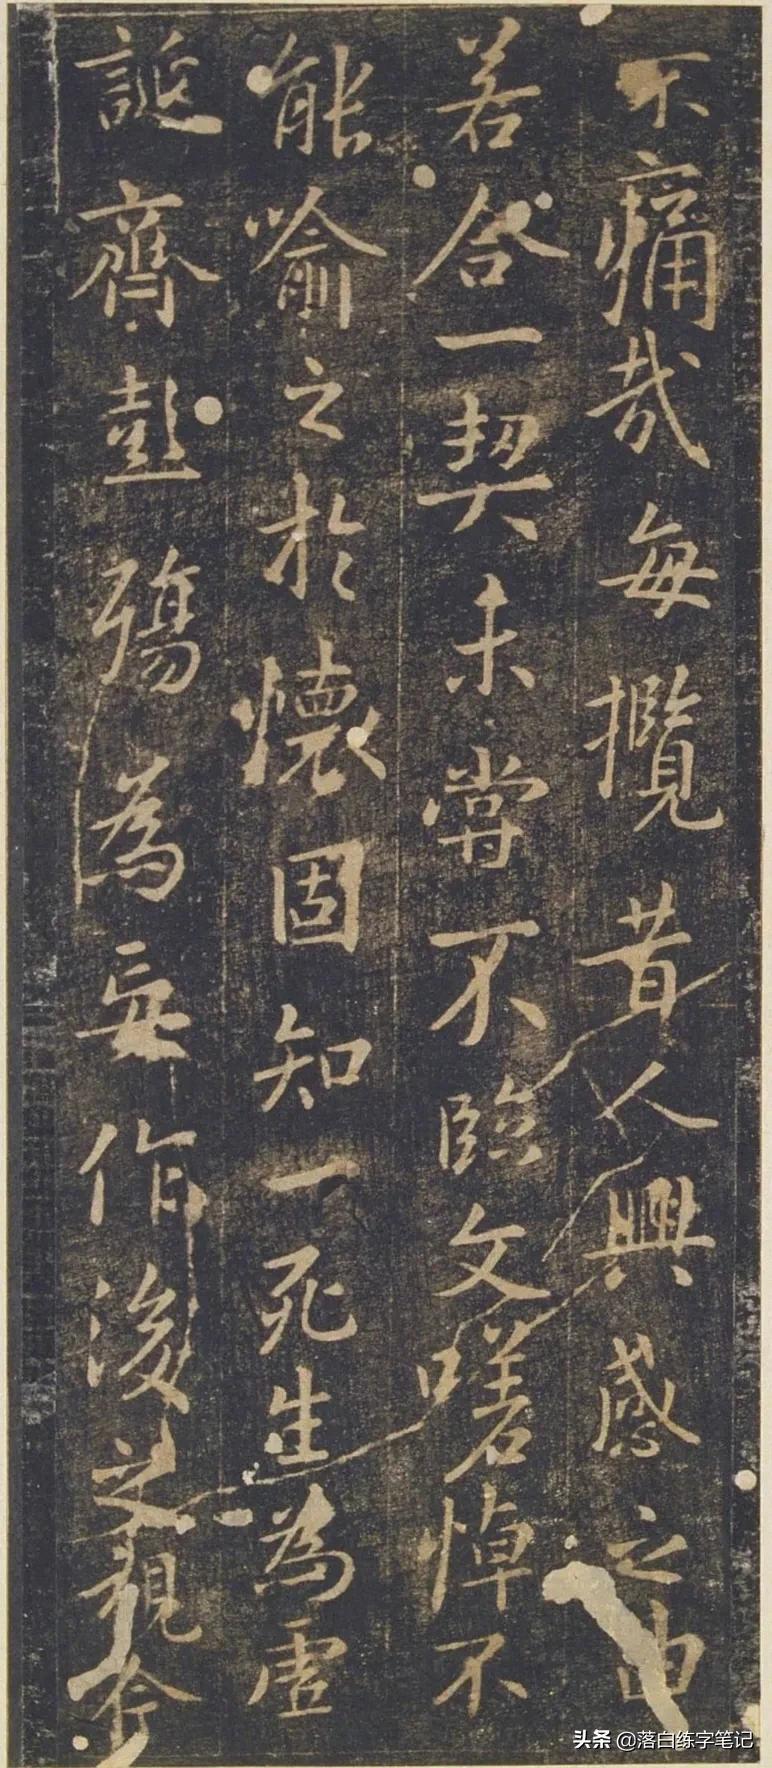 不痛哉每攬昔人興感之由
若合一契未嘗不臨文嗟悼不
能喻之於懷固知一死生為虛
誕齊彭殤為妄作後之視今
头条 @落白练字笔记